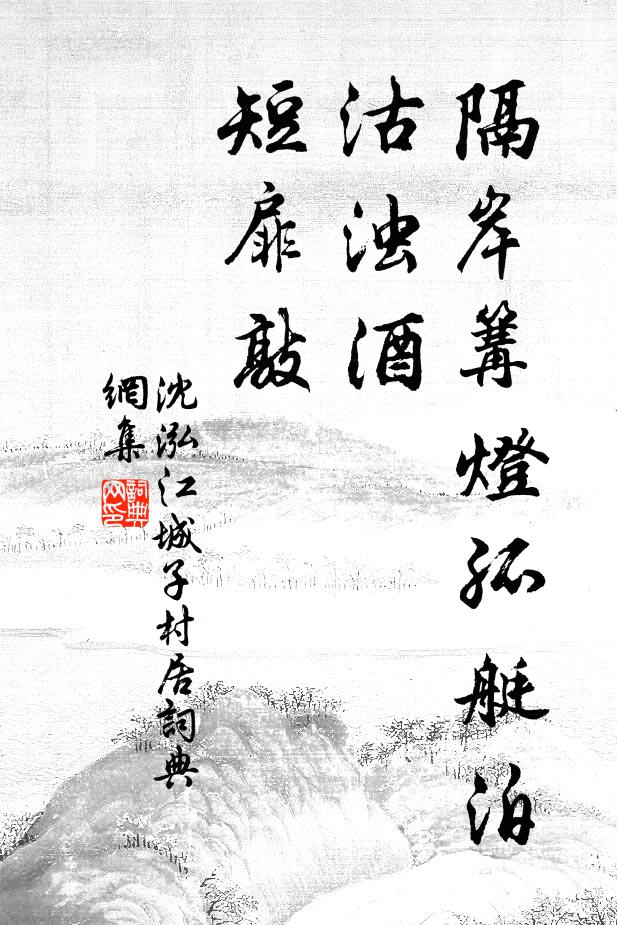 隔岸篝燈孤艇泊
沽浊酒
短扉敲
沈泓江城子村居詞典
網集
詞典網印